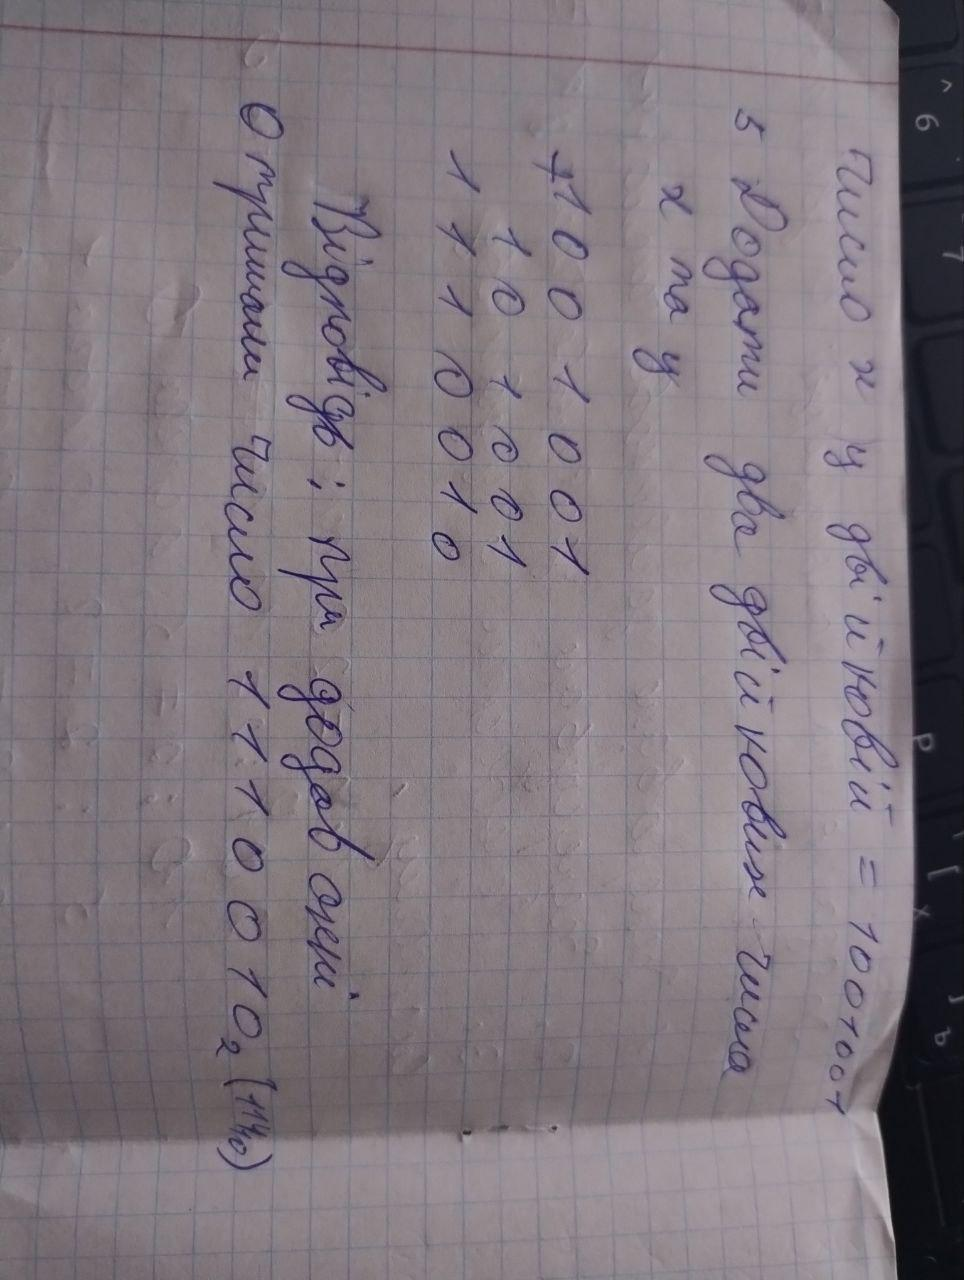 Число х у двійковій = 1001001
5 Додати два двійкових числа
х та у
+1001001
101001
1110010
Відповідь: при додаванні
Отримали число 1110010₂ (114₁₀)